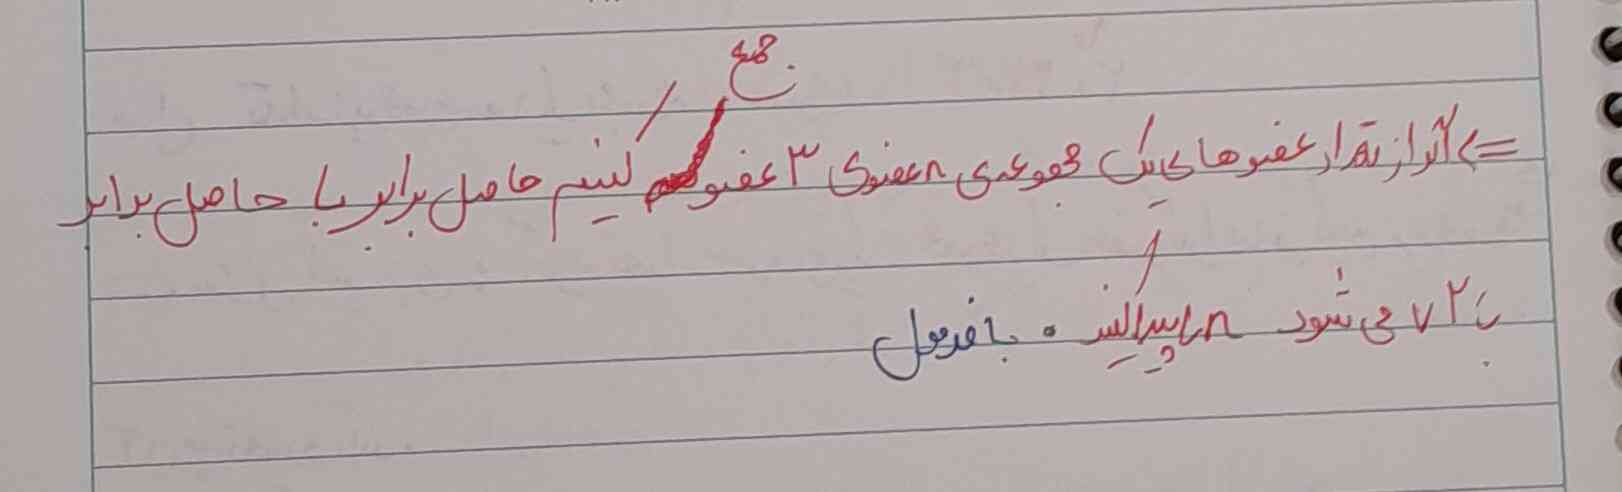 جمع
=> اگر از تعداد عضوهای یک مجموعه‌ی n عضوی ۳ عضو کنیم حاصل برابر با حاصل برابر
با ۷۲ می‌شود n را پیدا کنید. با فرمول